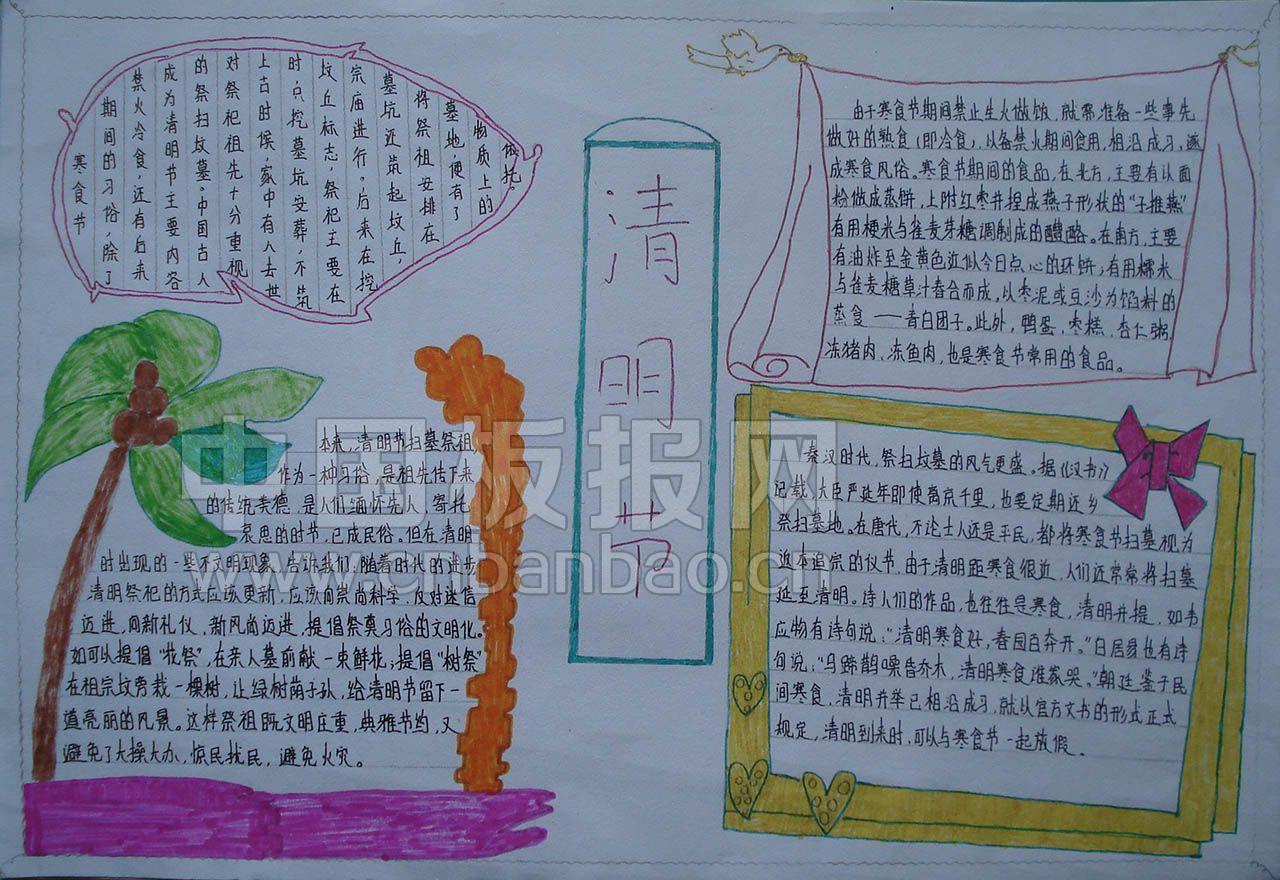 寒食节
期间的习俗，除了
禁火冷食，还有后来
成为清明节主要内容
的祭扫坟墓。中国古人
对祭祀祖先十分重视
上古时候，家中有人去世
时，只挖墓坑安葬，不筑
坟丘标志，祭祀主要在
宗庙进行。后来在挖
墓坑还筑起坟丘，
将祭祖安排在
墓地，便有了
物质上的
依托。
清明节
由于寒食节期间禁止生火做饭，就需准备一些事先
做好的熟食（即冷食），以备禁火期间食用，相沿成习，遂
成寒食风俗。寒食节期间的食品，在北方，主要有以面
粉做成蒸饼，上附红枣并捏成燕子形状的“子推燕”
有用梗米与雀麦芽糖调制成的醴酪。在南方，主要
有油炸至金黄色近似今日点心的环饼；有用糯米
与雀麦糖草汁舂合而成，以枣泥或豆沙为馅料的
蒸食——青白团子。此外，鸭蛋、枣糕、杏仁粥、
冻猪肉、冻鱼肉，也是寒食节常用的食品。
本来，清明节扫墓祭祖，
作为一种习俗，是祖先传下来
的传统美德，是人们缅怀先人、寄托
哀思的时节，已成民俗。但在清明
时出现的一些不文明现象，告诉我们，随着时代的进步
清明祭祀的方式应该更新，应该向崇尚科学、反对迷信
迈进，向新礼仪、新风尚迈进，提倡祭奠习俗的文明化。
如可以提倡“花祭”，在亲人墓前献一束鲜花；提倡“树祭”
在祖宗坟旁栽一棵树，让绿树荫子孙，给清明节留下一
道亮丽的风景。这样祭祖既文明庄重，典雅节约，又
避免了大操大办，惊民扰民，避免火灾。
秦汉时代，祭扫坟墓的风气更盛。据《汉书》
记载，大臣严延年即使离京千里，也要定期还乡
祭扫墓地。在唐代，不论士人还是平民，都将寒食节扫墓视为
返本追宗的仪节，由于清明距寒食很近，人们还常常将扫墓
延至清明。诗人们的作品，也往往是寒食，清明并提，如韦
应物有诗句说：“清明寒食好，春园百卉开。”白居易也有诗
句说：“乌蹄鹊噪昏乔木，清明寒食谁家哭。”朝廷鉴于民
间寒食，清明并举已相沿成习，就以官方文书的形式正式
规定，清明到来时，可以与寒食节一起放假。
中国板报网
www.cnbanbao.cn